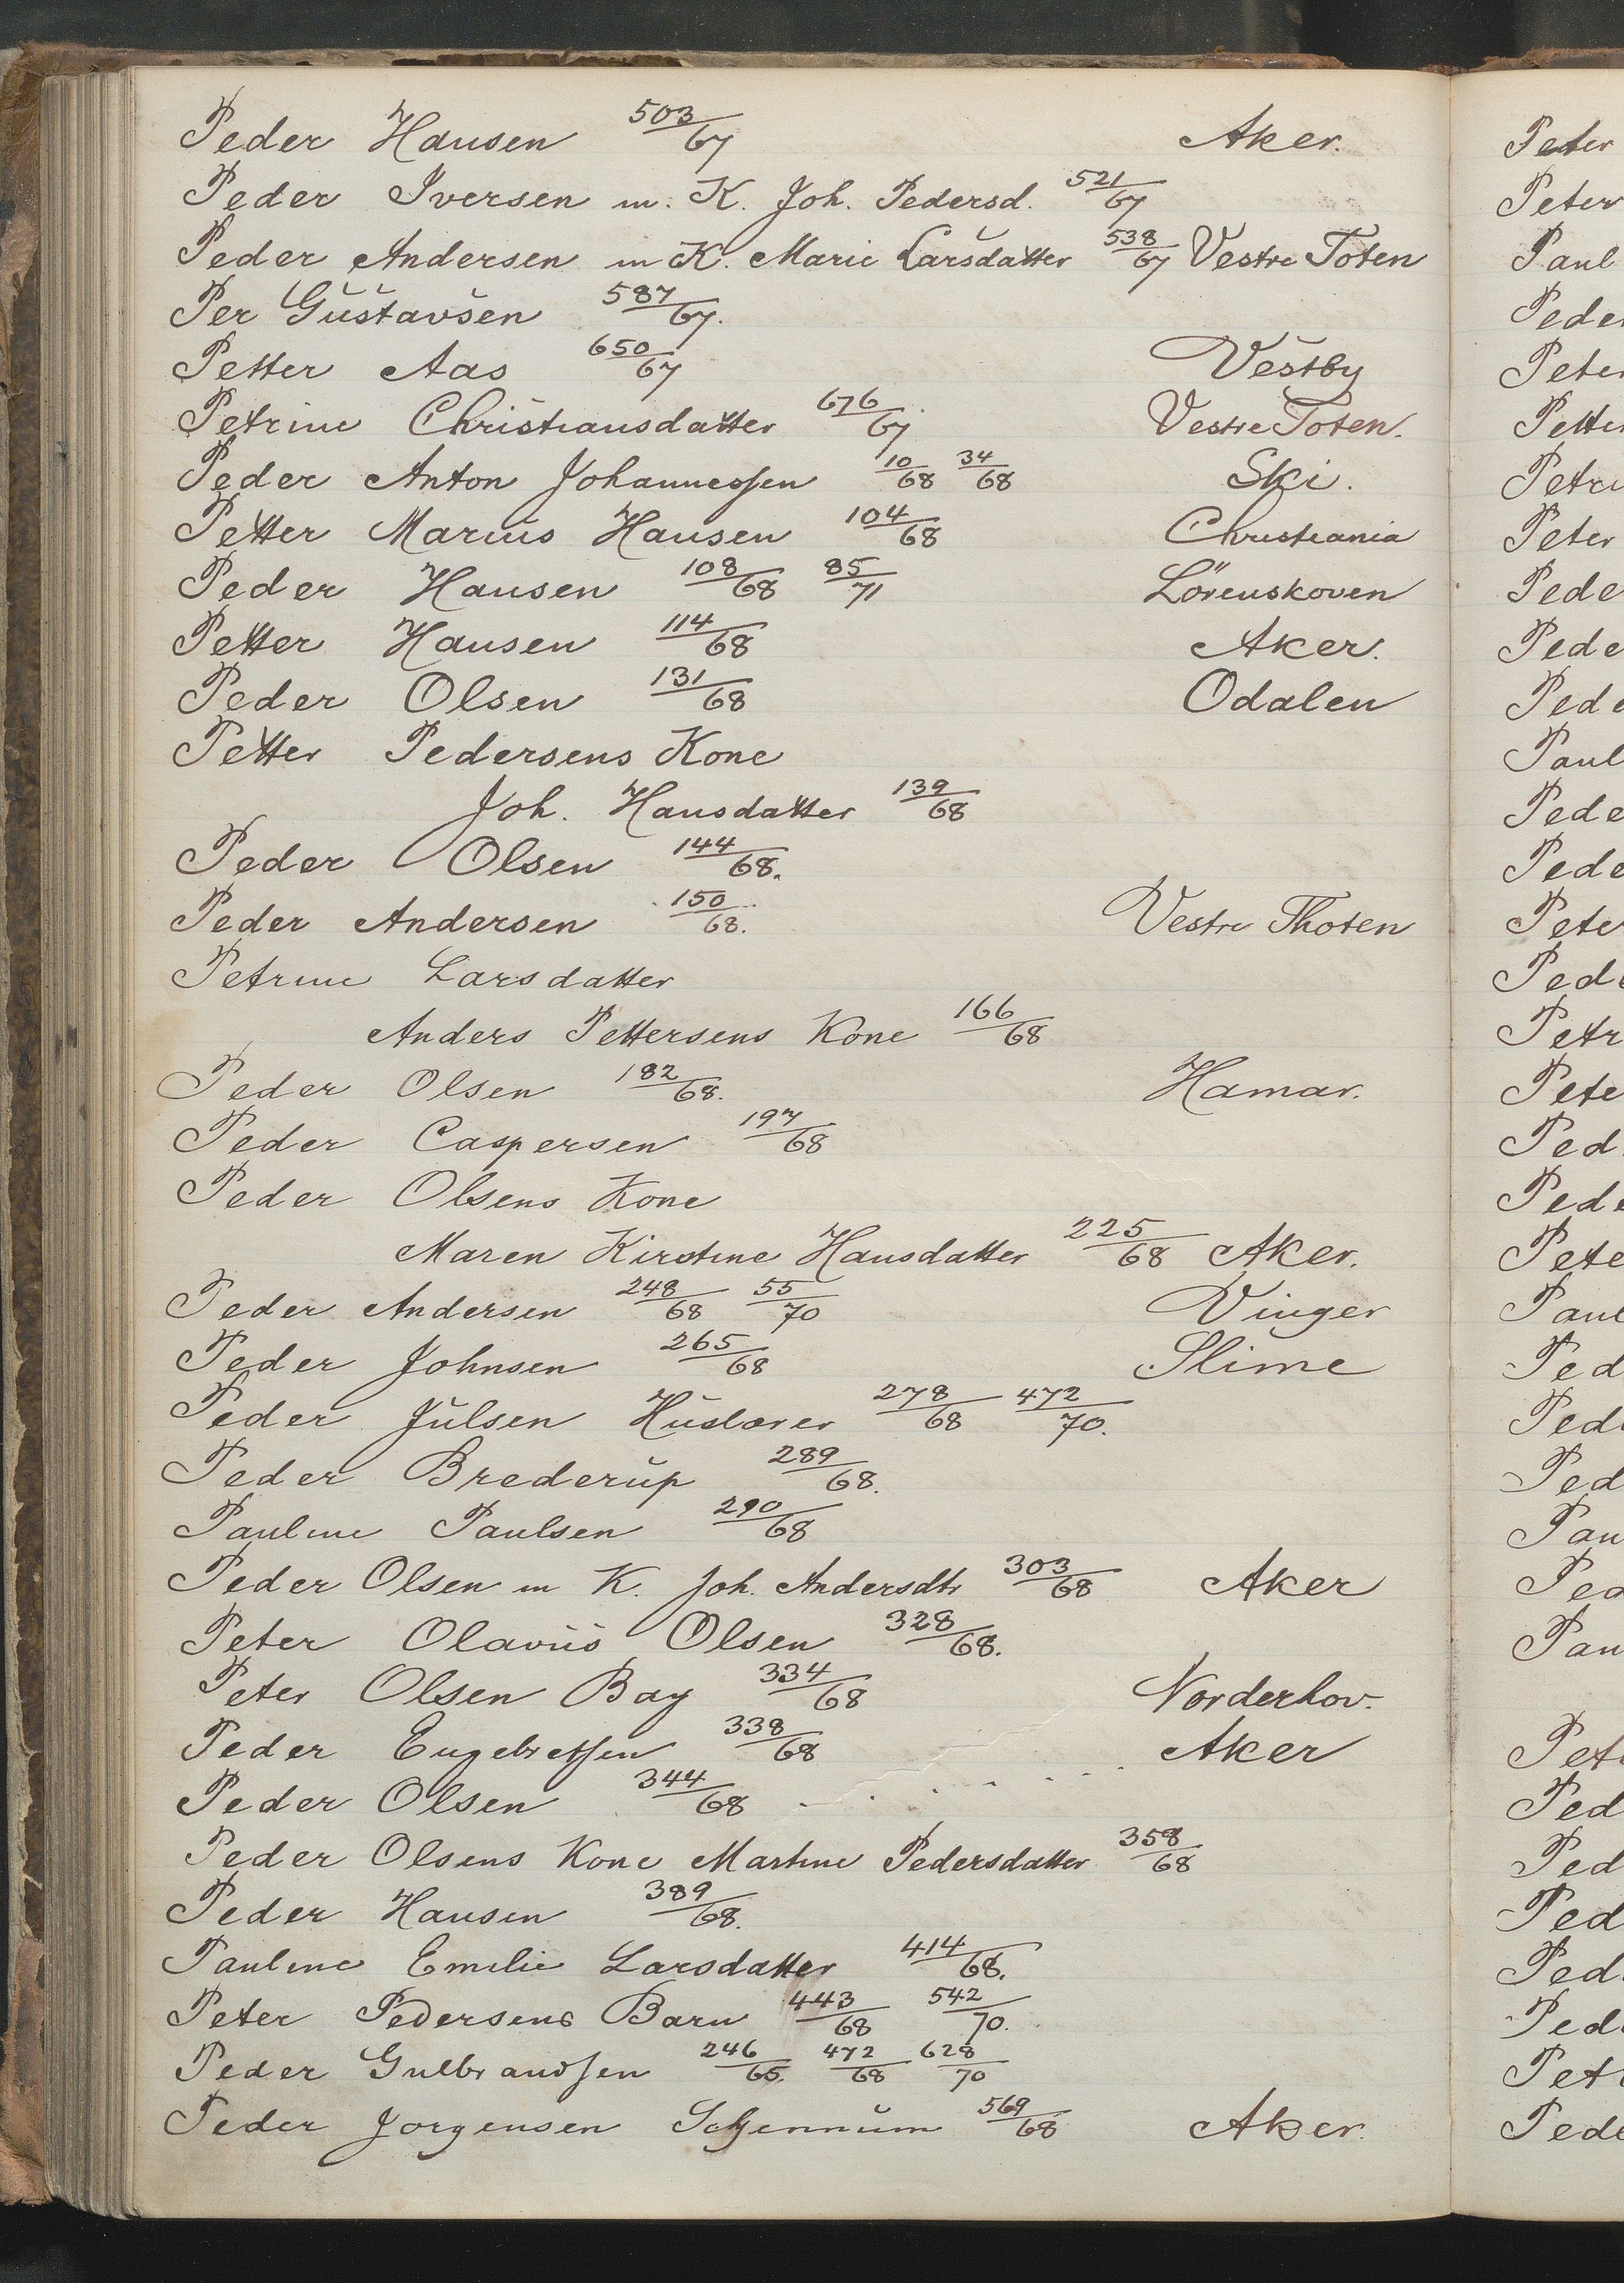 Peder Hansen 503/67 Aker.
Peder Iversen m. K. Joh. Pedersd. 521/67
Peder Andersen m K. Marie Larsdatter 538/67 Vestre Toten
Per Gustavsen 587/67.
Petter Aas 650/67 Vestby
Petrine Christiansdatter 676/67 Vestre Toten.
Peder Anton Johannessen 10/68 34/68 Ski.
Petter Marius Hansen 104/68 Christiania
Peder Hansen 108/68 85/71 Lörenskoven
Petter Hansen 114/68 Aker.
Peder Olsen 131/68 Odalen
Petter Pedersens Kone
Joh. Hansdatter 139/68
Peder Olsen 144/68.
Peder Andersen 150/68. Vestre Thoten
Petrine Larsdatter
Anders Pettersens Kone 166/68
Peder Olsen 182/68. Hamar.
Peder Caspersen 197/68
Peder Olsens Kone
Maren Kirstine Hansdatter 225/68 Aker.
Peder Andersen 248/68 55/70 Vinger
Peder Johnsen 265/68 Slime
Peder Julsen Huslærer 278/68 472/70.
Peder Brederup 289/68.
Pauline Paulsen 290/68
Peder Olsen m K. Joh. Andersdtr 303/68 Aker
Peter Olavus Olsen 328/68.
Peter Olsen Bay 334/68 Norderhov.
Peder Engebretsen 338/68 Aker
Peder Olsen 344/68
Peder Olsens Kone Martine Pedersdatter 358/68
Peder Hansen 389/68.
Pauline Emilie Larsdatter 414/68.
Peter Pedersens Barn 443/68 542/70.
Peder Gulbrandsen 246/65. 472/68 628/70
Peder Jorgensen 569/68 Aker.
Peter
Peter
Paul
Peter
Peter
Paul